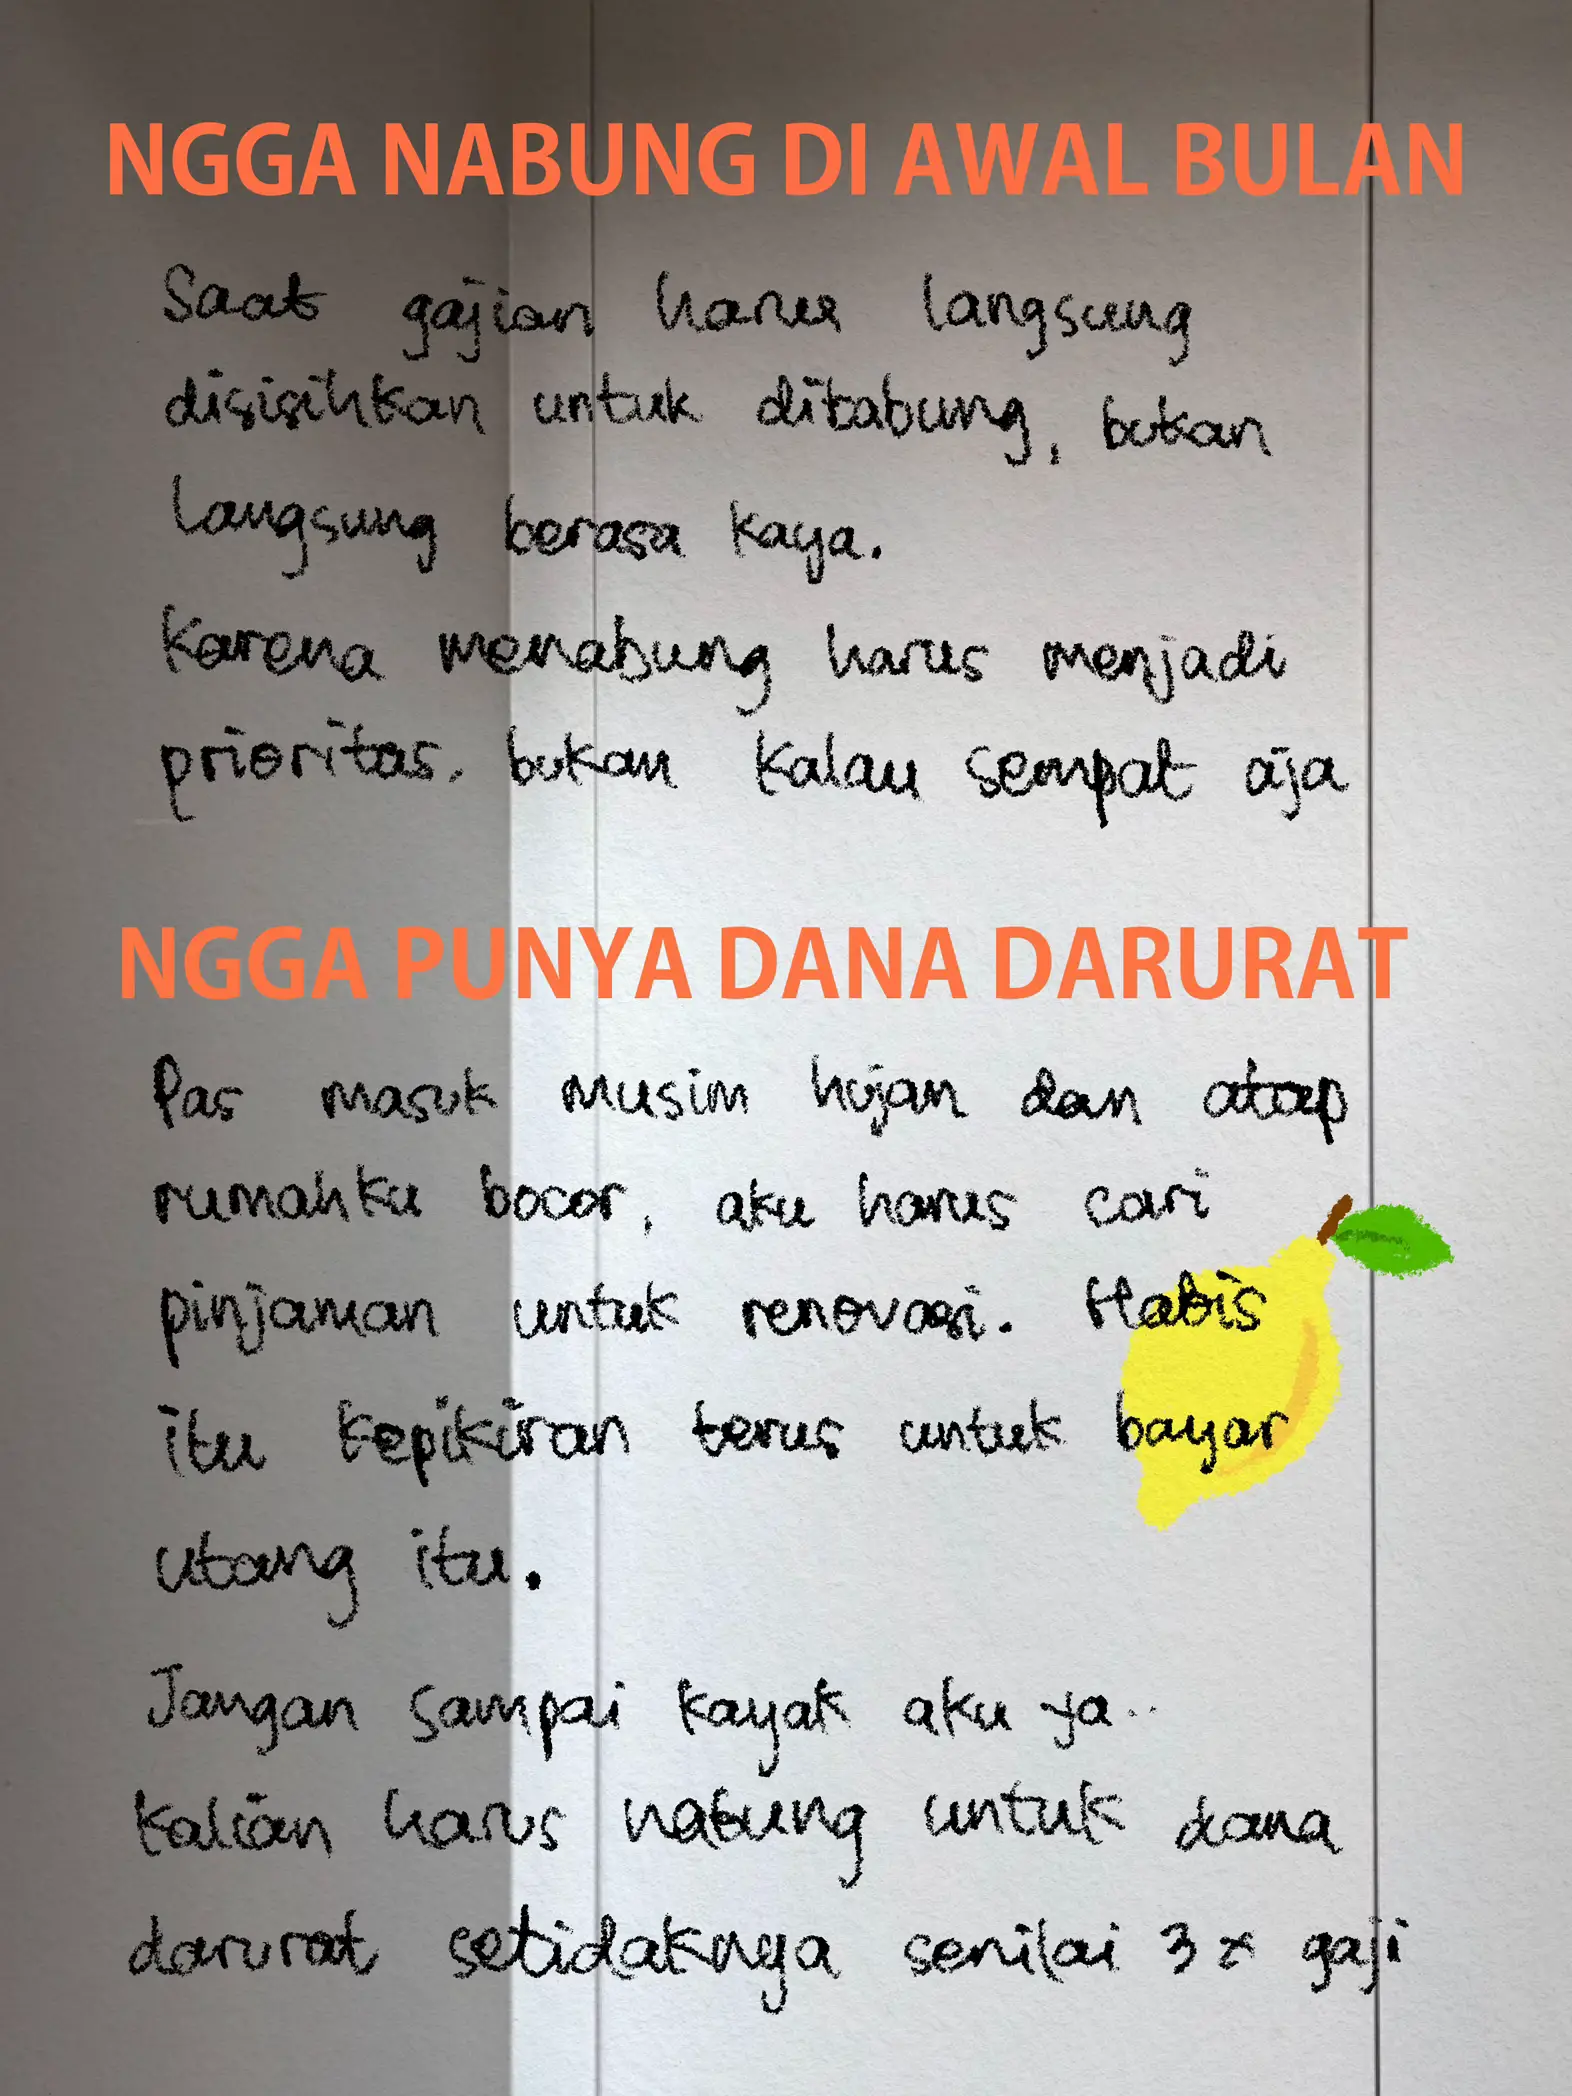 NGGA NABUNG DI AWAL BULAN
Saat gajian harus langsung
disisihkan untuk ditabung, bukan
langsung berasa kaya.
Karena menabung harus menjadi
prioritas. bukan kalau sempat aja
NGGA PUNYA DANA DARURAT
Pas masuk musim hujan dan atap
rumahku bocor, aku harus cari
pinjaman untuk renovasi. Habis
itu kepikiran terus untuk bayar
utang itu.
Jangan sampai kayak aku ya..
Kalian harus nabung untuk dana
darurat setidaknya senilai 3x gaji